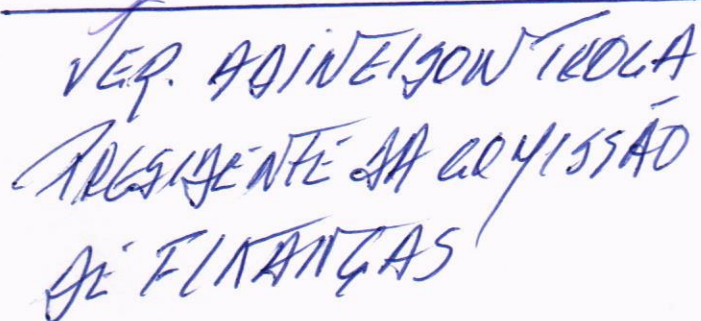 VER. ADINELSON TROCA
PRESIDENTE DA COMISSÃO
DE FINANÇAS